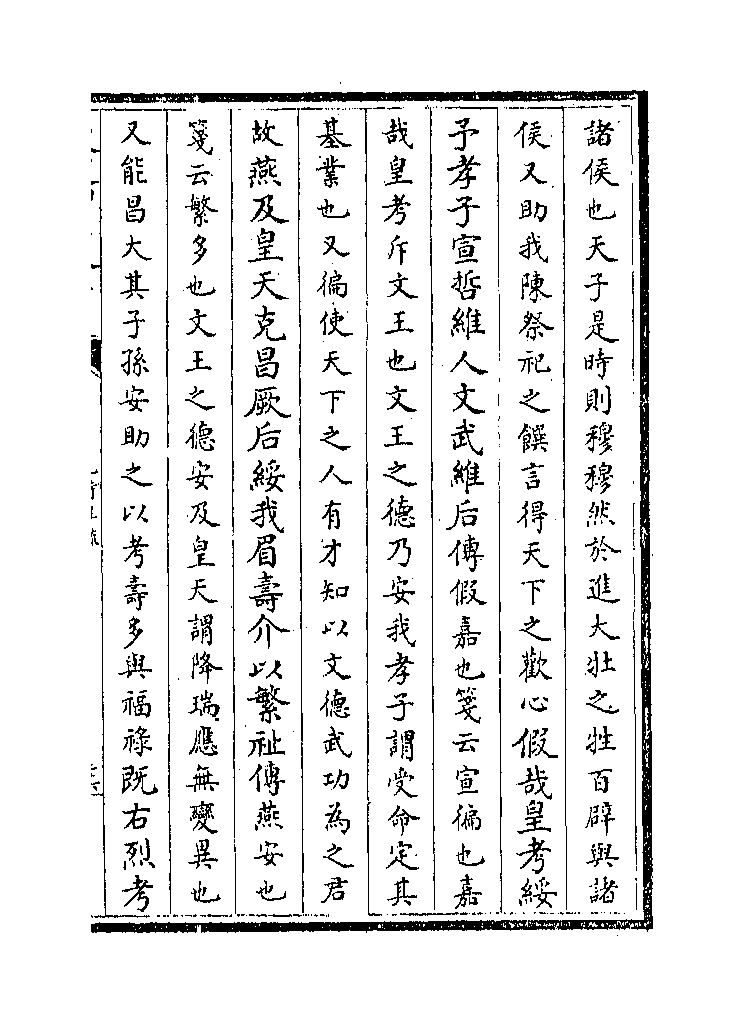 諸侯也天子是時則穆穆然於進大壯之牲百辟與諸
侯又助我陳祭祀之饌言得天下之歡心假哉皇考綏
予孝子宣哲維人文武維后傳假嘉也箋云宣徧也嘉
哉皇考斥文王也文王之德乃安我孝子謂受命定其
基業也又徧使天下之人有才知以文德武功為之君
故燕及皇天克昌厥后綏我眉壽介以繁祉傳燕安也
箋云繁多也文王之德安及皇天謂降瑞應無變異也
又能昌大其子孫安助之以考壽多與福祿既右烈考